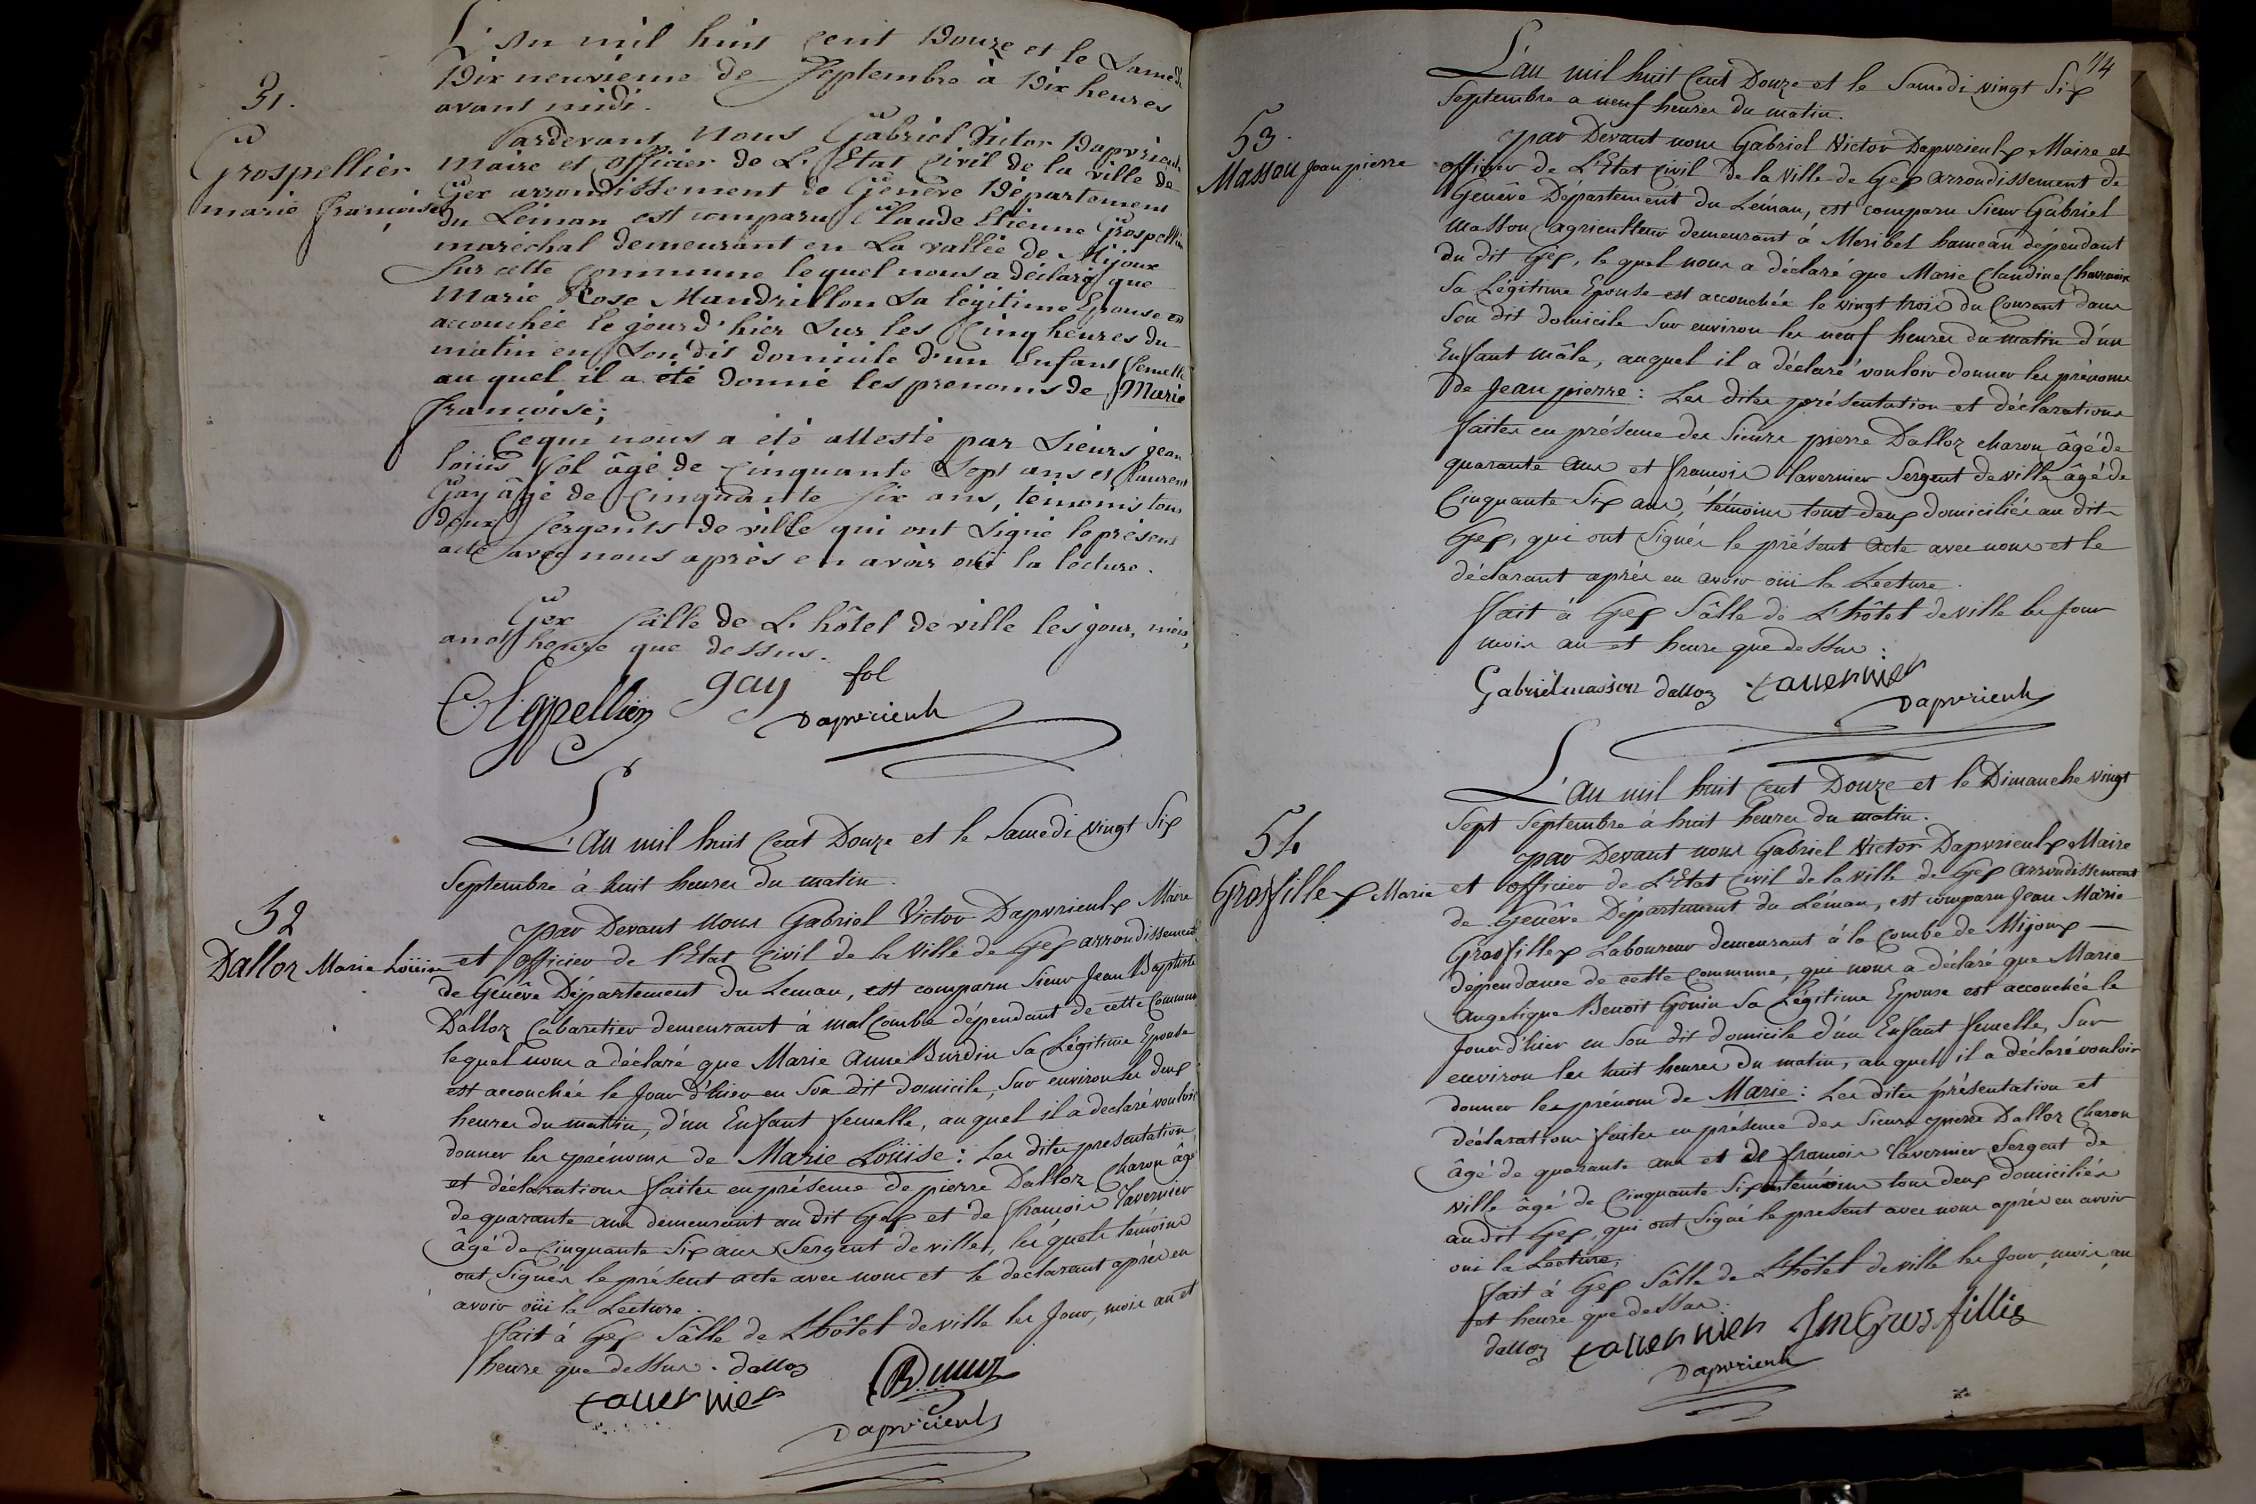 L'An mil huit Cent Douze et le Samedi
Dix neuvième de Septembre à Dix heures
avant midi.
31.
Grospellier
marie françoise
Pardevant Nous Gabriel Victor Dapvrieulx
Maire et officier de L'Etat Civil de la ville de
Gex arrondissement de Genêve Département
du Léman est comparu Claude Etienne Grospellier
maréchal demeurant en La vallée de Mijoux
Sur cette Commune lequel nous a déclaré que
Marie Rose Mandrillon Sa légitime Epouse est
accouchée le jour d'hier Sur les Cinq heures du
matin en Son dit domicile d'un Enfant femelle
au quel il a été donné les prenoms de Marie
françoise;
Ce qui nous a été attesté par Sieurs jean
loüis fol âgé de Cinquante Sept ans et Laurent
Gay âgé de Cinquante Six ans, témoins tous
deux Sergents de ville qui ont Signé le présent
acte avec nous après en avoir oüi la lecture.
Gex Sâlle de L'hôtel de ville les jour, mois,
an et heure que dessus.
gay fol
Dapvrieulx
L'An mil huit Cent Douze et le Samedi vingt Six
Septembre à huit heures du matin.
52
Dalloz Marie Loüise
par Devant nous Gabriel Victor Dapvrieulx Maire
et officier de l'Etat Civil de la Ville de Gex arrondissement
de Genêve Département du Leman, est comparu Sieur Jean Baptiste
Dalloz Cabaretier demeurant à malCombe dépendant de cette Commune
lequel nous a déclaré que Marie Anne Burdin Sa Légitime Epouse
est accouchée le Jour d'hier en Son dit domicile, Sur environ les deux
heures du matin, d'un Enfant femelle, auquel il a declaré vouloir
donner les prénoms de Marie Loüise: Les dites presentation
et déclarations faites en présence de pierre Dalloz Charon âgé
de quarante ans demeurant au dit Gex et de françois Tavernier
âgé de Cinquante Six ans Sergent de ville, les quels témoins
ont Signés le présent acte avec nous et le declarant après en
avoir oüi la Lecture.
fait à Gex Sâlle de L'hôtel de ville les Jour, mois an et
heure que dessus. dalloz
tavernier
Dapvrieulx
14
L'an mil huit Cent Douze et le Samedi vingt Six
Septembre a neuf heures du matin.
53.
Masson Jean pierre
par Devant nous Gabriel Victor Dapvrieulx Maire et
officier de L'Etat Civil de la Ville de Gex arrondissement de
Genêve Département du Léman, est comparu Sieur Gabriel
Masson agriculteur demeurant à Meribel hameau dépendant
du dit Gex, lequel nous a déclaré que Marie Claudine
Sa Légitime Epouse est accouchée le vingt trois du Courant dans
Son dit domicile Sur environ les neuf heures du matin d'un
Enfant mâle, auquel il a déclaré vouloir donner les prénoms
de Jean pierre: Les dites présentation et déclarations
faites en présence des Sieurs pierre Dalloz charon âgé de
quarante ans et francois Tavernier Sergent de ville âgé de
Cinquante Six ans, témoins tous deux domiciliés au dit
Gex, qui ont Signés le présent acte avec nous et le
déclarant après en avoir oüi la Lecture.
fait à Gex Sâlle de L'hôtel de ville les Jour
mois an et heure que dessus:
Gabriel masson dalloz tavernier
Dapvrieulx
L'an mil huit Cent Douze et le Dimanche vingt
Sept Septembre à huit heures du matin.
54
Grosfillex Marie
par Devant nous Gabriel Victor Dapvrieulx Maire
et officier de L'Etat Civil de la ville de Gex arrondissement
de Genêve Département du Léman, est comparu Jean Marie
Grosfillex Laboureur demeurant à la Combe de Mijoux
dépendance de cette Commune, qui nous a déclaré que Marie
Angelique Benoit Gonin Sa Légitime Epouse est accouchée le
Jour d'hier en Son dit domicile d'un Enfant femelle, Sur
environ les huit heures du matin, auquel il a déclaré vouloir
donner les prénom de Marie: Les dites présentation et
déclarations faites en présence des Sieurs pierre Dalloz Charon
âgé de quarante ans et de francois Tavernier Sergent de
ville âgé de Cinquante Six ans témoins tous deux Domiciliés
au dit Gex, qui ont Signé le présent avec nous après en avoir
oui la Lecture;
fait à Gex Sâlle de L'hôtel de ville les Jour, mois, an
et heure que dessus.
dalloz tavernier Jm Gros fillie
Dapvrieulx